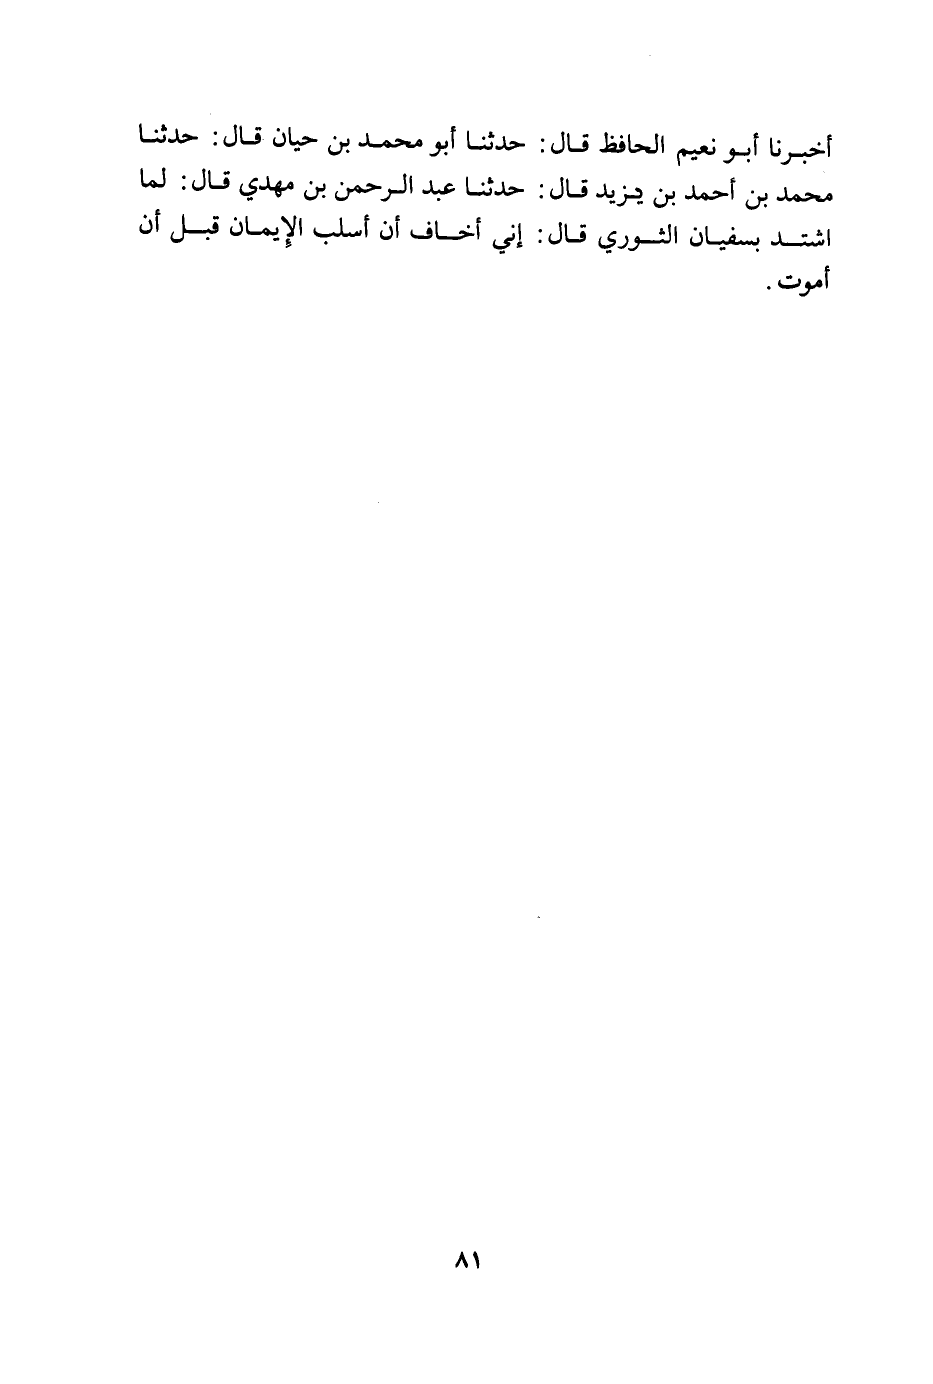 أخبرنا أبو نعيم الحافظ قال: حدثنا أبو محمد بن حيان قال: حدثنا
محمد بن أحمد بن يزيد قال: حدثنا عبد الرحمن بن مهدي قال: لما
اشتد بسفيان الثوري قال: إني أخاف أن أسلب الإيمان قبل أن
أموت .
٨١